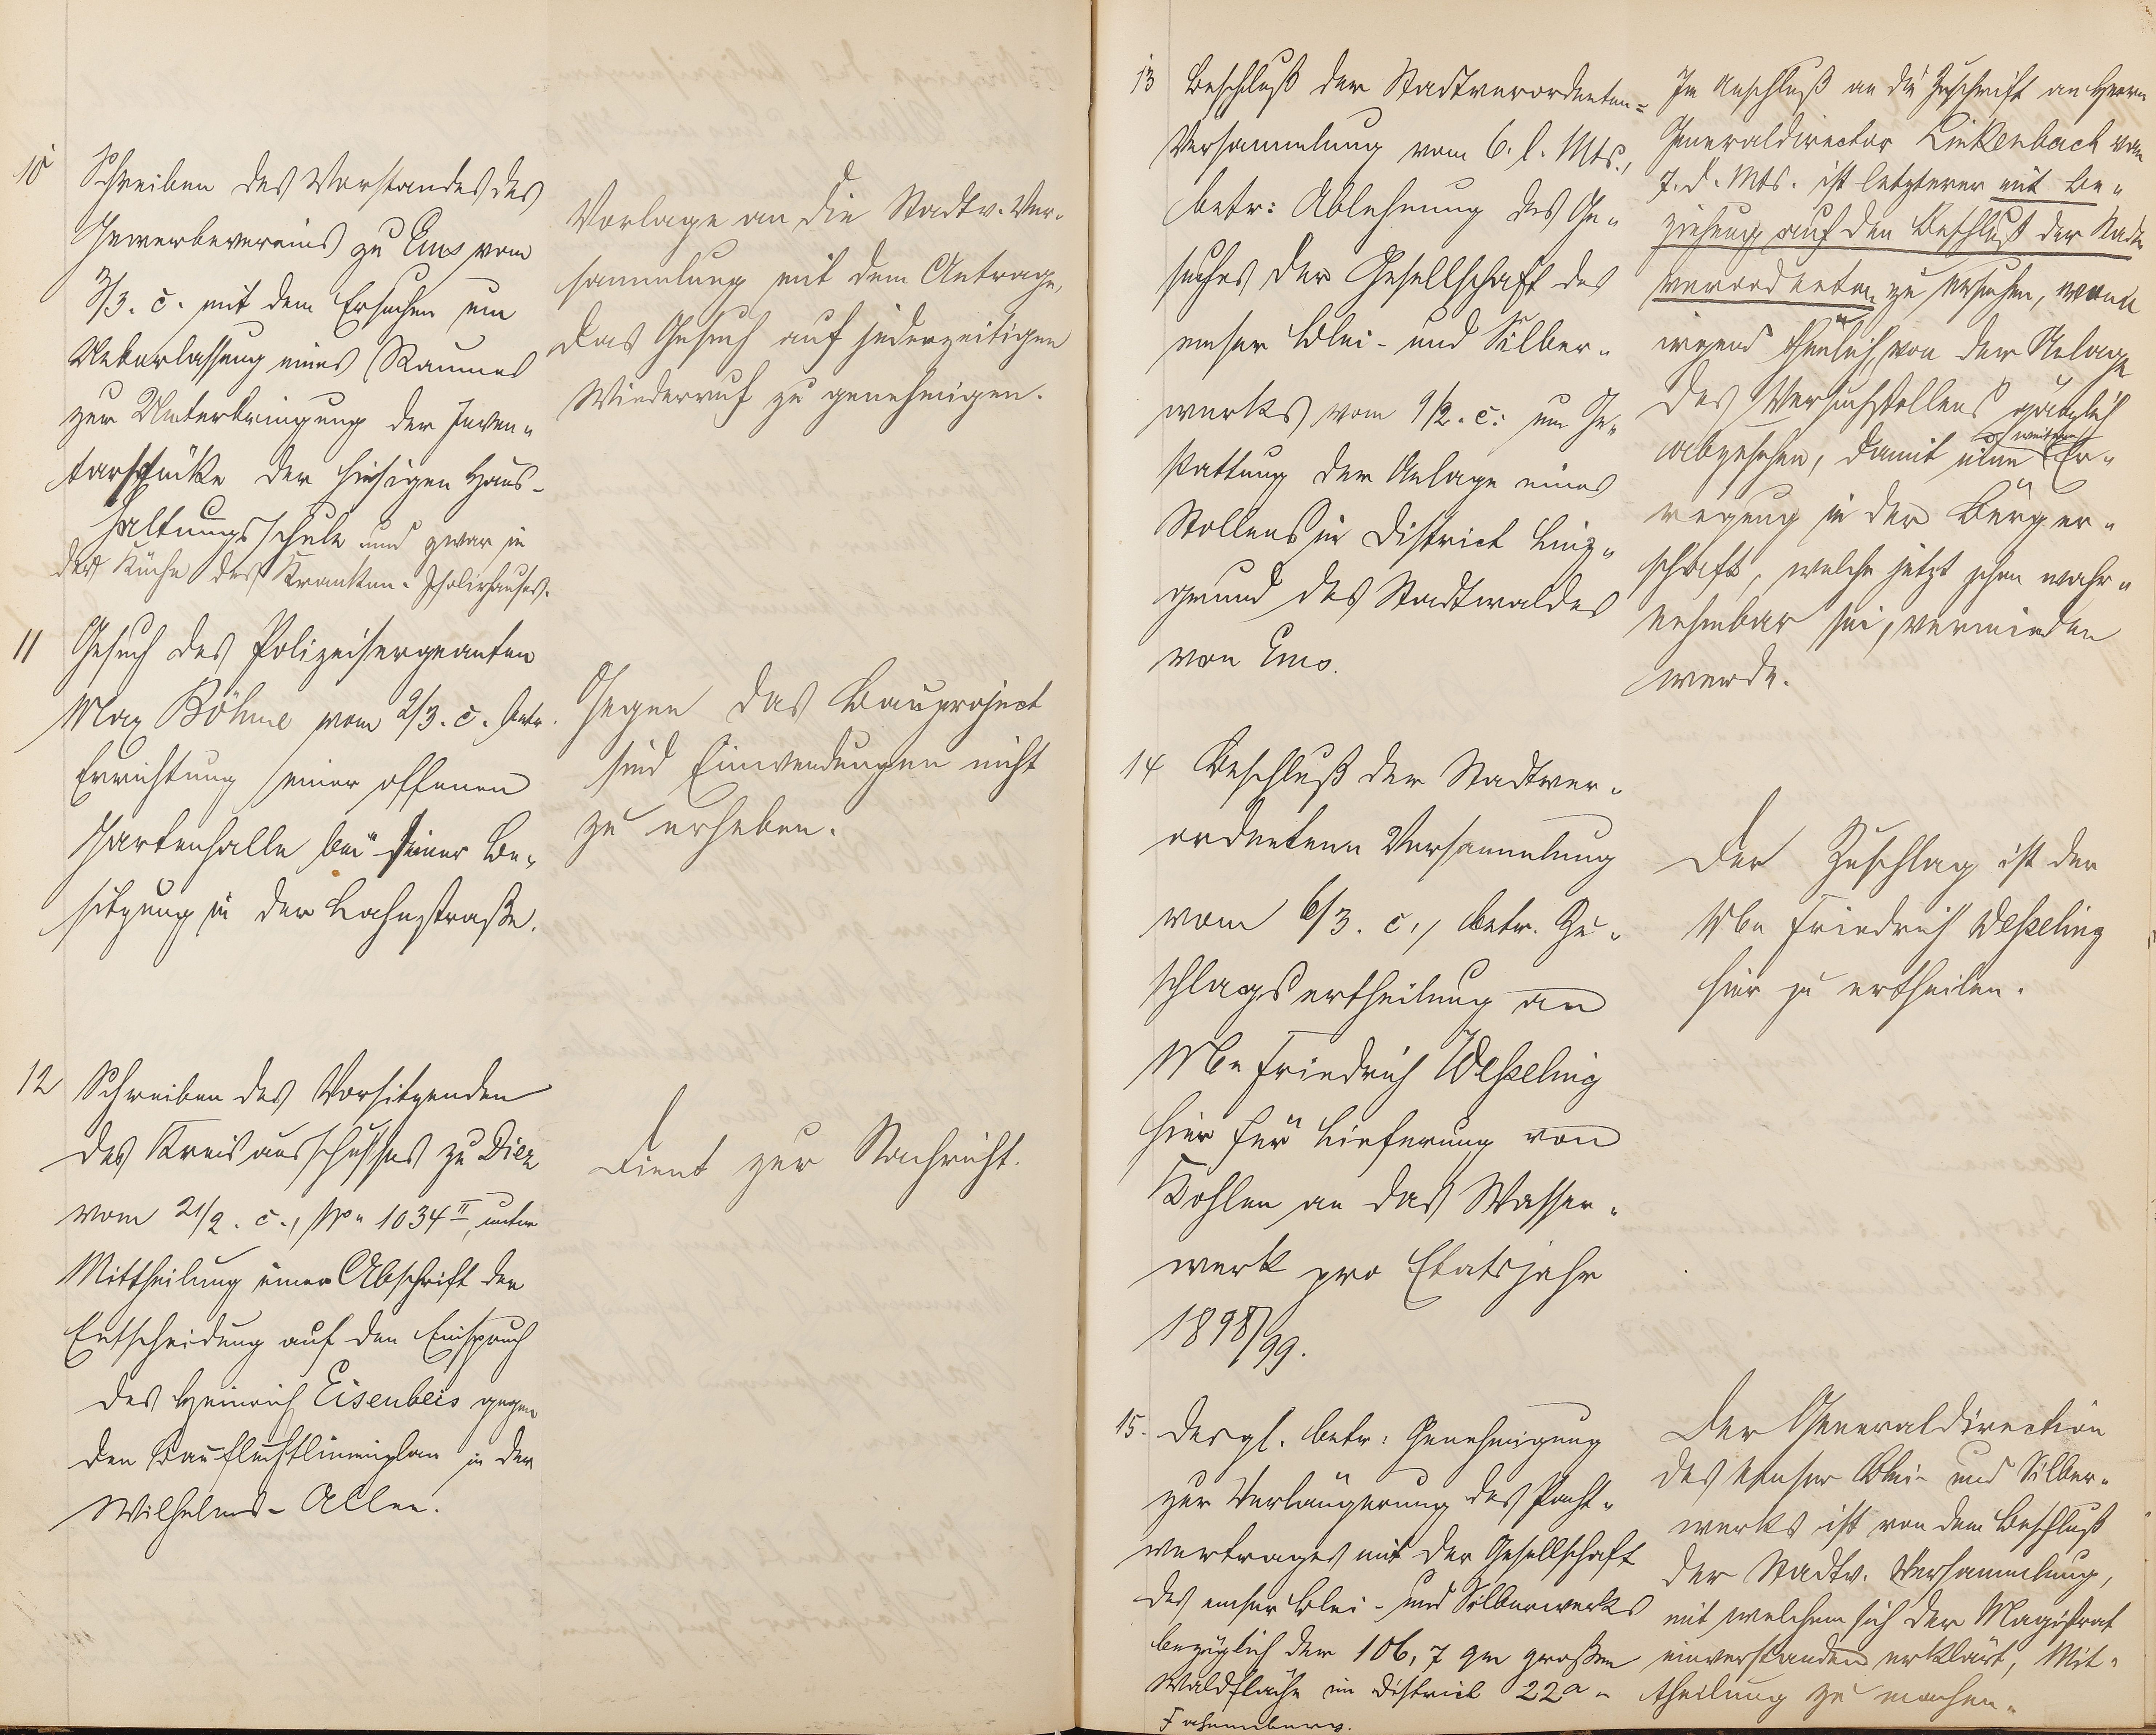 10 Schreiben des Vorstandes des
Gewerbevereins zu Ems vom
3/3. c. mit dem Ersuchen um
Ueberlassung eines Raumes
zur Unterbringung der Inven-
tarstücke der hiesigen Haus-
haltungsschule und zwar in
der Küche des Kranken-Isolirhauses.
Vorlage an die Stadtv. Ver-
sammlung mit dem Antrage,
das Gesuch auf jederzeitigen
Wiederruf zu genehmigen.
11 Gesuch des Polizeisergeanten
Max Böhme vom 2/3. c. betr.
Errichtung einer offenen
Gartenhalle bei seiner Be-
sitzung in der Lahnstraße.
Gegen das Bauproject
sind Einwendungen nicht
zu erheben.
12 Schreiben des Vorsitzenden
des Kreisausschusses zu Diez
vom 21/2. c., No 1034 II, unter
Mittheilung einer Abschrift der
Entscheidung auf den Einspruch
des Heinrich Eisenbeis gegen
den Baufluchtlinienplan in der
Wilhelms-Allee.
Dient zur Nachricht.
13 Beschluß der Stadtverordneten-
Versammlung vom 6. l. Mts.,
betr: Ablehnung des Ge-
suches der Gesellschaft des
emser Blei- und Silber-
werks vom 9/2. c. um Ge-
stattung der Anlage eines
Stollens im District Linz-
grund des Stadtwaldes
von Ems.
Im Anschluß an die Zuschrift an Herrn
Generaldirector Linkenbach vom
7. d. Mts. ist letzterer mit Be-
ziehung auf den Beschluß der Stadt
verordneten zu ersuchen, wenn
irgend thunlich, von der Anlage
des Versuchstollens gänzlich
abzusehen, damit eine weitere Er-
regung in der Bürger-
schaft, welche jetzt schon wahr-
nehmbar sei, vermieden
werde.
14 Beschluß der Stadtver-
ordneten Versammlung
vom 6/3. c., betr. Zu-
schlagsertheilung an
Wbe Friedrich Weßeling
hier für Lieferung von
Kohlen an das Wasser-
werk pro Etatsjahr
1898/99.
Der Zuschlag ist der
Wbe Friedrich Weßeling
hier zu ertheilen.
15. Desgl. betr: Genehmigung
zur Verlängerung des Pacht-
vertrages mit der Gesellschaft
des emser Blei- und Silberwerks
bezüglich der 106,7 qm großen
Waldfläche im District 22a-
Der Generaldirection
des emser Blei- und Silber-
werks ist von dem Beschluß
der Stadtv. Versammlung,
mit welchem sich der Magistrat
einverstanden erklärt, Mit-
theilung zu machen.